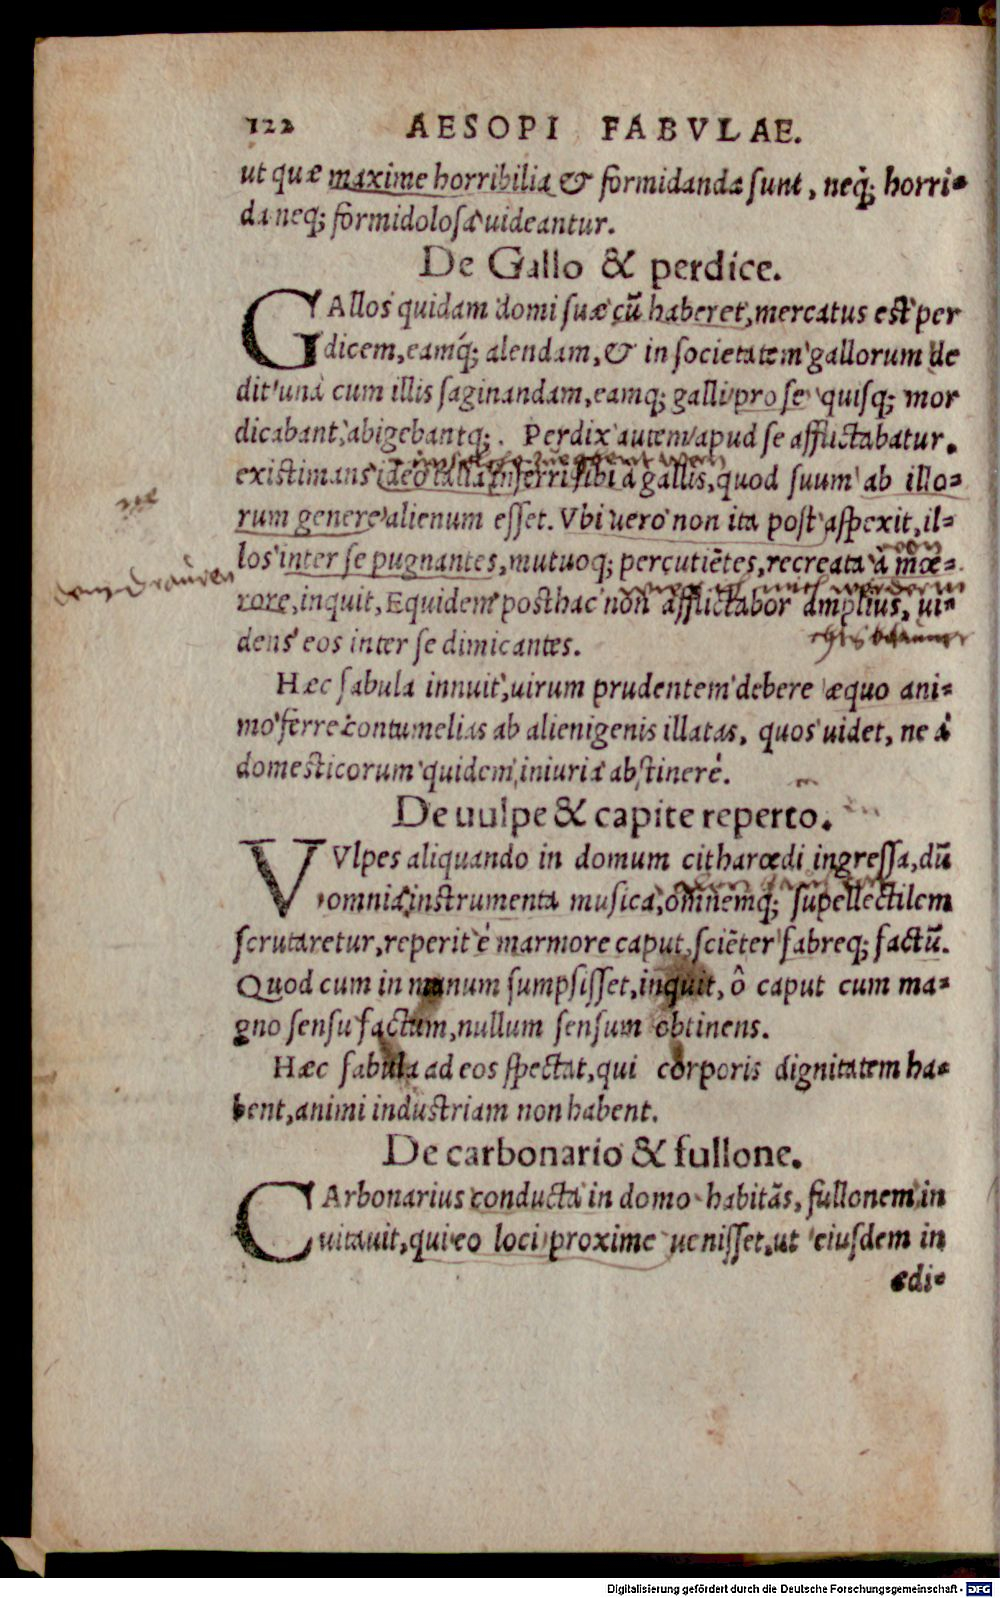 122 AESOPI FABVLAE.
ut quæ maxime horribilia & formidanda sunt, neq; horri-
da neq; formidolosa uideantur.
De Gallo & perdice.
GAllos quidam domi suæ cũ haberet, mercatus est per
dicem, eamq́; alendam, & in societatem gallorum de
dit unà cum illis saginandam, eamq; galli pro se quisq; mor
dicabant, abigebantq;. Perdix autem apud se afflictabatur.
existimans ideo talia inferri sibi à gallis, quod suum ab illo-
rum genere alienum esset. Vbi uero non ita post aspexit, il-
los inter se pugnantes, mutuoq; percutiẽtes, recreata à mœ-
rore, inquit, Equidem posthac non afflictabor amplius, ui-
dens eos inter se dimicantes.
Hæc fabula innuit, uirum prudentem debere æquo ani-
mo ferre contumelias ab alienigenis illatas, quos uidet, ne à
domesticorum quidem iniuria abstinere.
De uulpe & capite reperto.
VVlpes aliquando in domum citharœdi ingressa, dũ
omnia instrumenta musica, omnemq; supellectilem
scrutaretur, reperit è marmore caput, sciẽter fabreq; factũ.
Quod cum in manum sumpsisset, inquit, ô caput cum ma-
gno sensu factum, nullum sensum obtinens.
Hæc fabula ad eos spectat, qui corporis dignitatem ha-
bent, animi industriam non habent.
De carbonario & fullone.
CArbonarius conducta in domo habitãs, fullonem in
uitauit, qui eo loci proxime uenisset, ut eiusdem in
ædi-
Digitalisierung gefördert durch die Deutsche Forschungsgemeinschaft - DFG